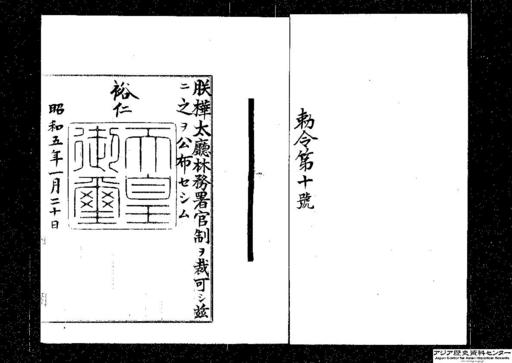 勅令第十號
朕樺太廳林務署官制ヲ裁可シ茲
ニ之ヲ公布セシム
裕仁
天皇
御璽
昭和五年一月二十日
アジア歴史資料センター
Japan Center for Asian Historical Records